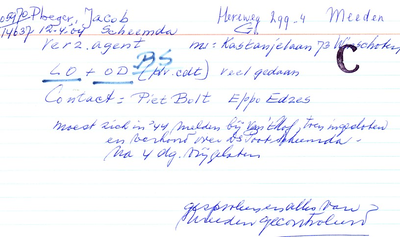 Ploeger, Jacob Hereweg 299-4 Meeden
12.4.04 Scheemda
verz. agent nu: Kastanjelaan 73 Winschoten
C
BS
LO + OD (pv. cdt) veel gedaan
Contact = Piet Bolt Eppo Edzes
moest zich in '44 melden bij van 't Hof, toen ingesloten
en verhoord over Scheemda -
Na 4 dg. vrijgelaten
gesproken en alles van
Meeden gecontroleerd